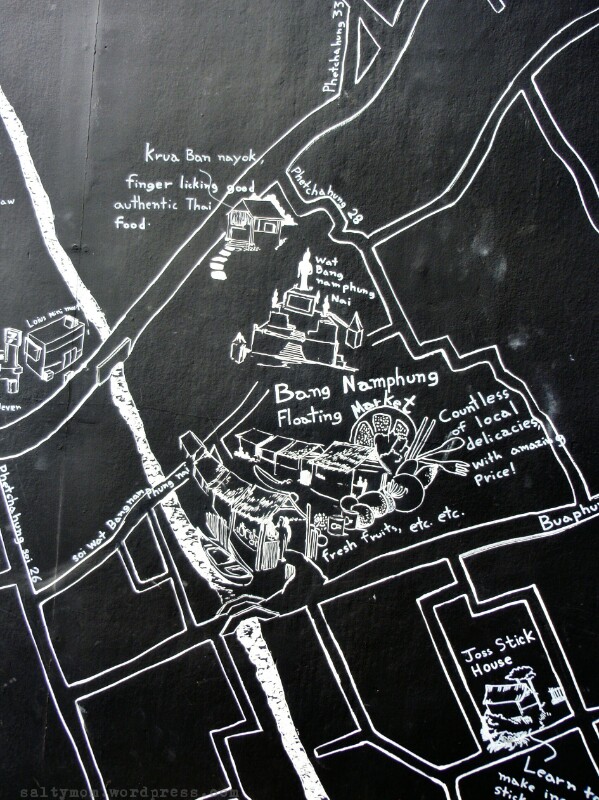 Phetchahung 33
Krua Ban nayok,
finger licking good
authentic Thai
Food.
Phetchahung 28
aw
Wat
Bang
namphung
Nai
Bang Namphung
Floating Market
Countless
of local
delicacies,
with amazing
Price!
fresh fruits, etc. etc.
Buaphu
leven
Phetchahung soi 26
soi Wat Bangnamphung nai
Joss Stick
House
Learn t
make in
stick
saltymom.wordpress.com